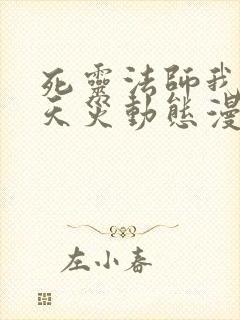 死靈法師我
天災動態漫
左小春